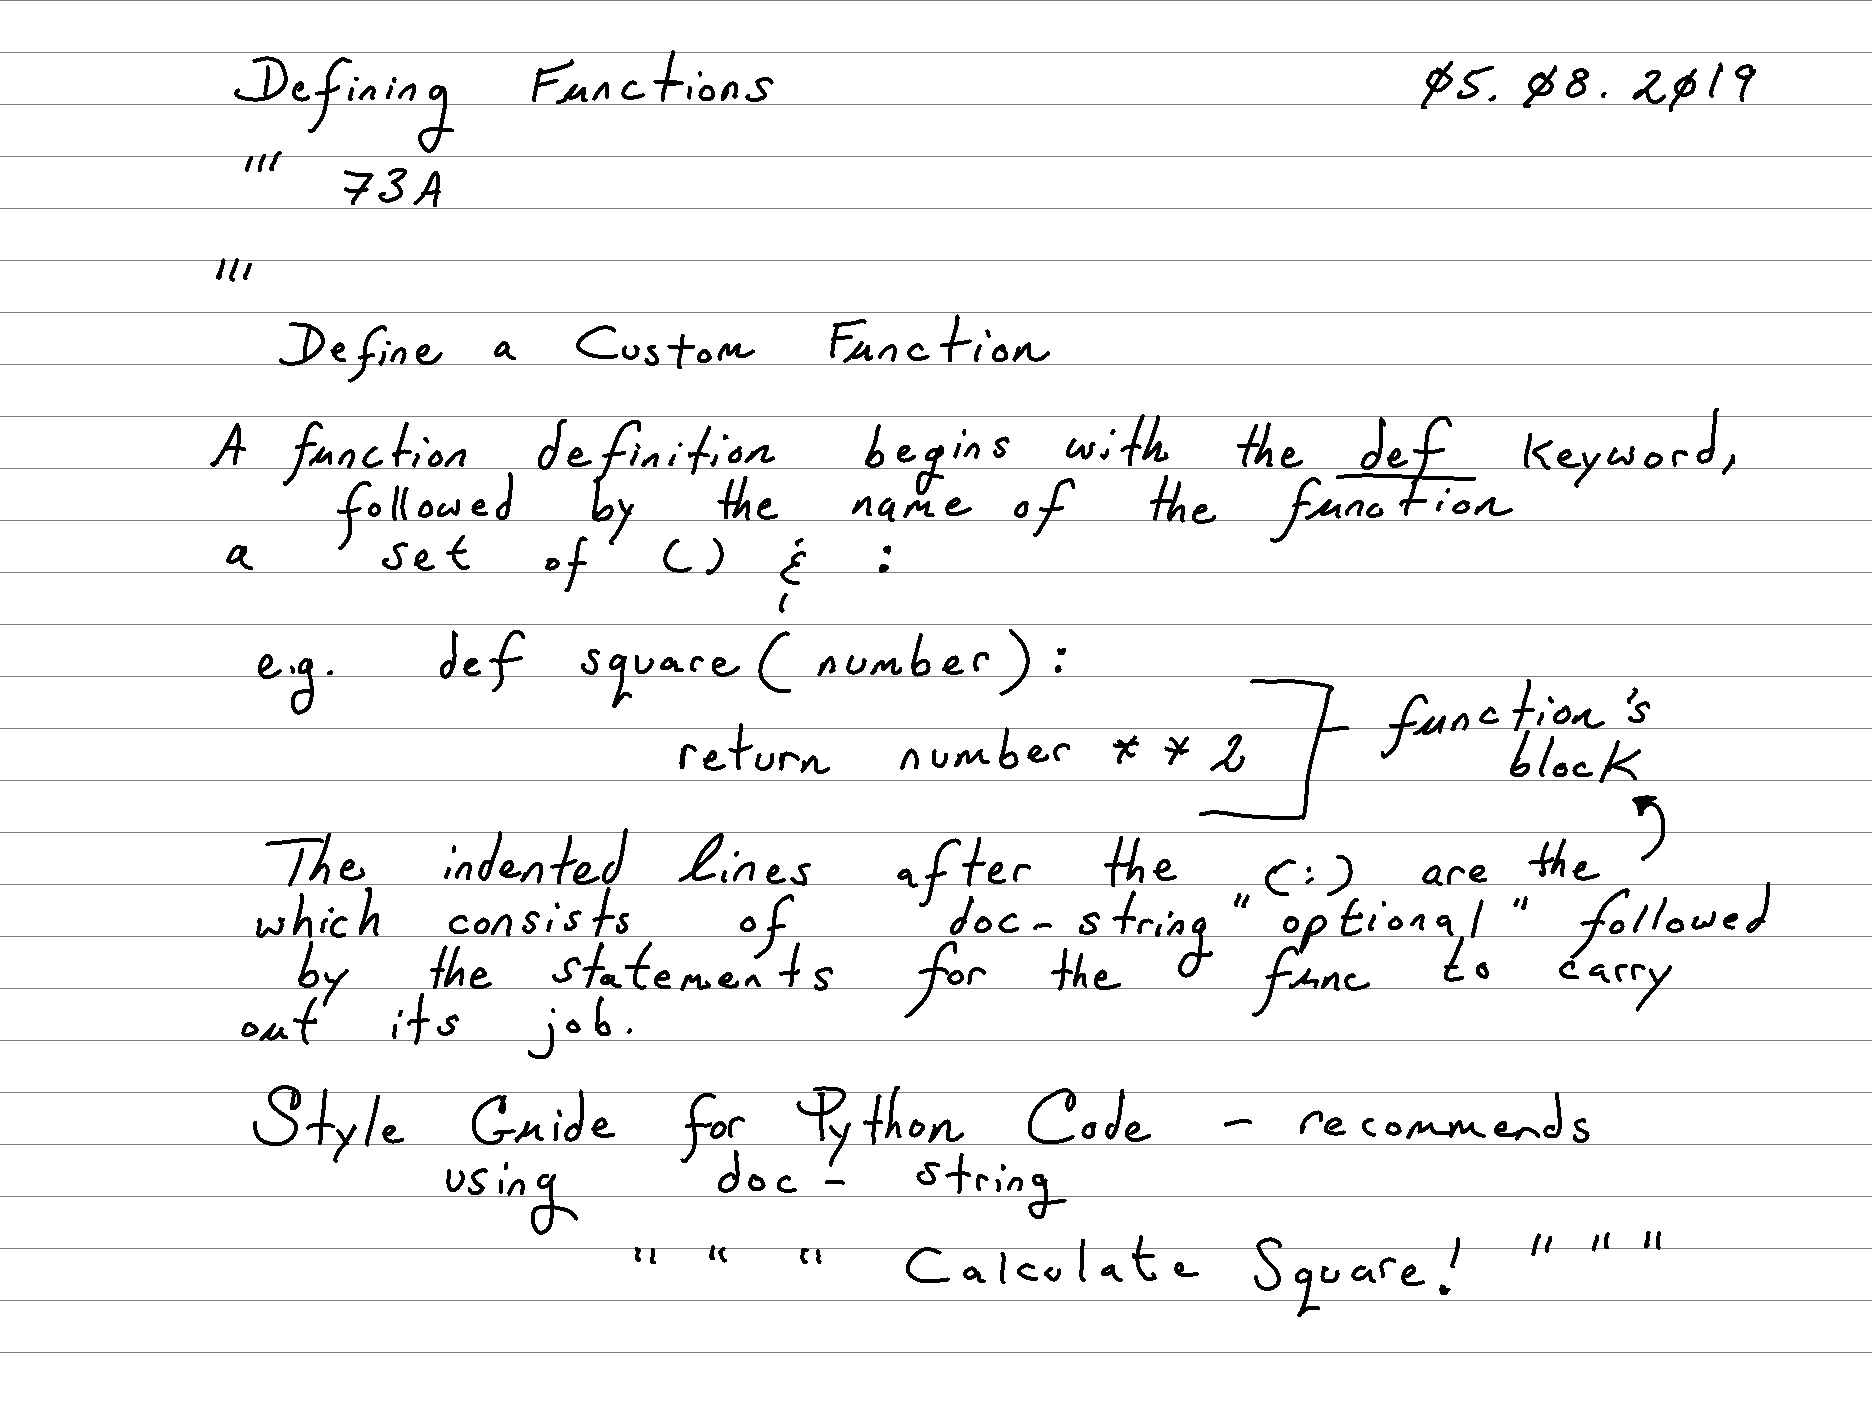 Defining Functions 05.08.2019
''' 73A
'''
Define a Custom Function
A function definition begins with the def keyword,
followed by the name of the function
a set of () & :
e.g. def square(number):
return number * * 2
function's
block
The indented lines after the (:) are the
which consists of doc-string "optional" followed
by the statements for the func to carry
out its job.
Style Guide for Python Code - recommends
using doc-string
" " " Calculate Square! " " "